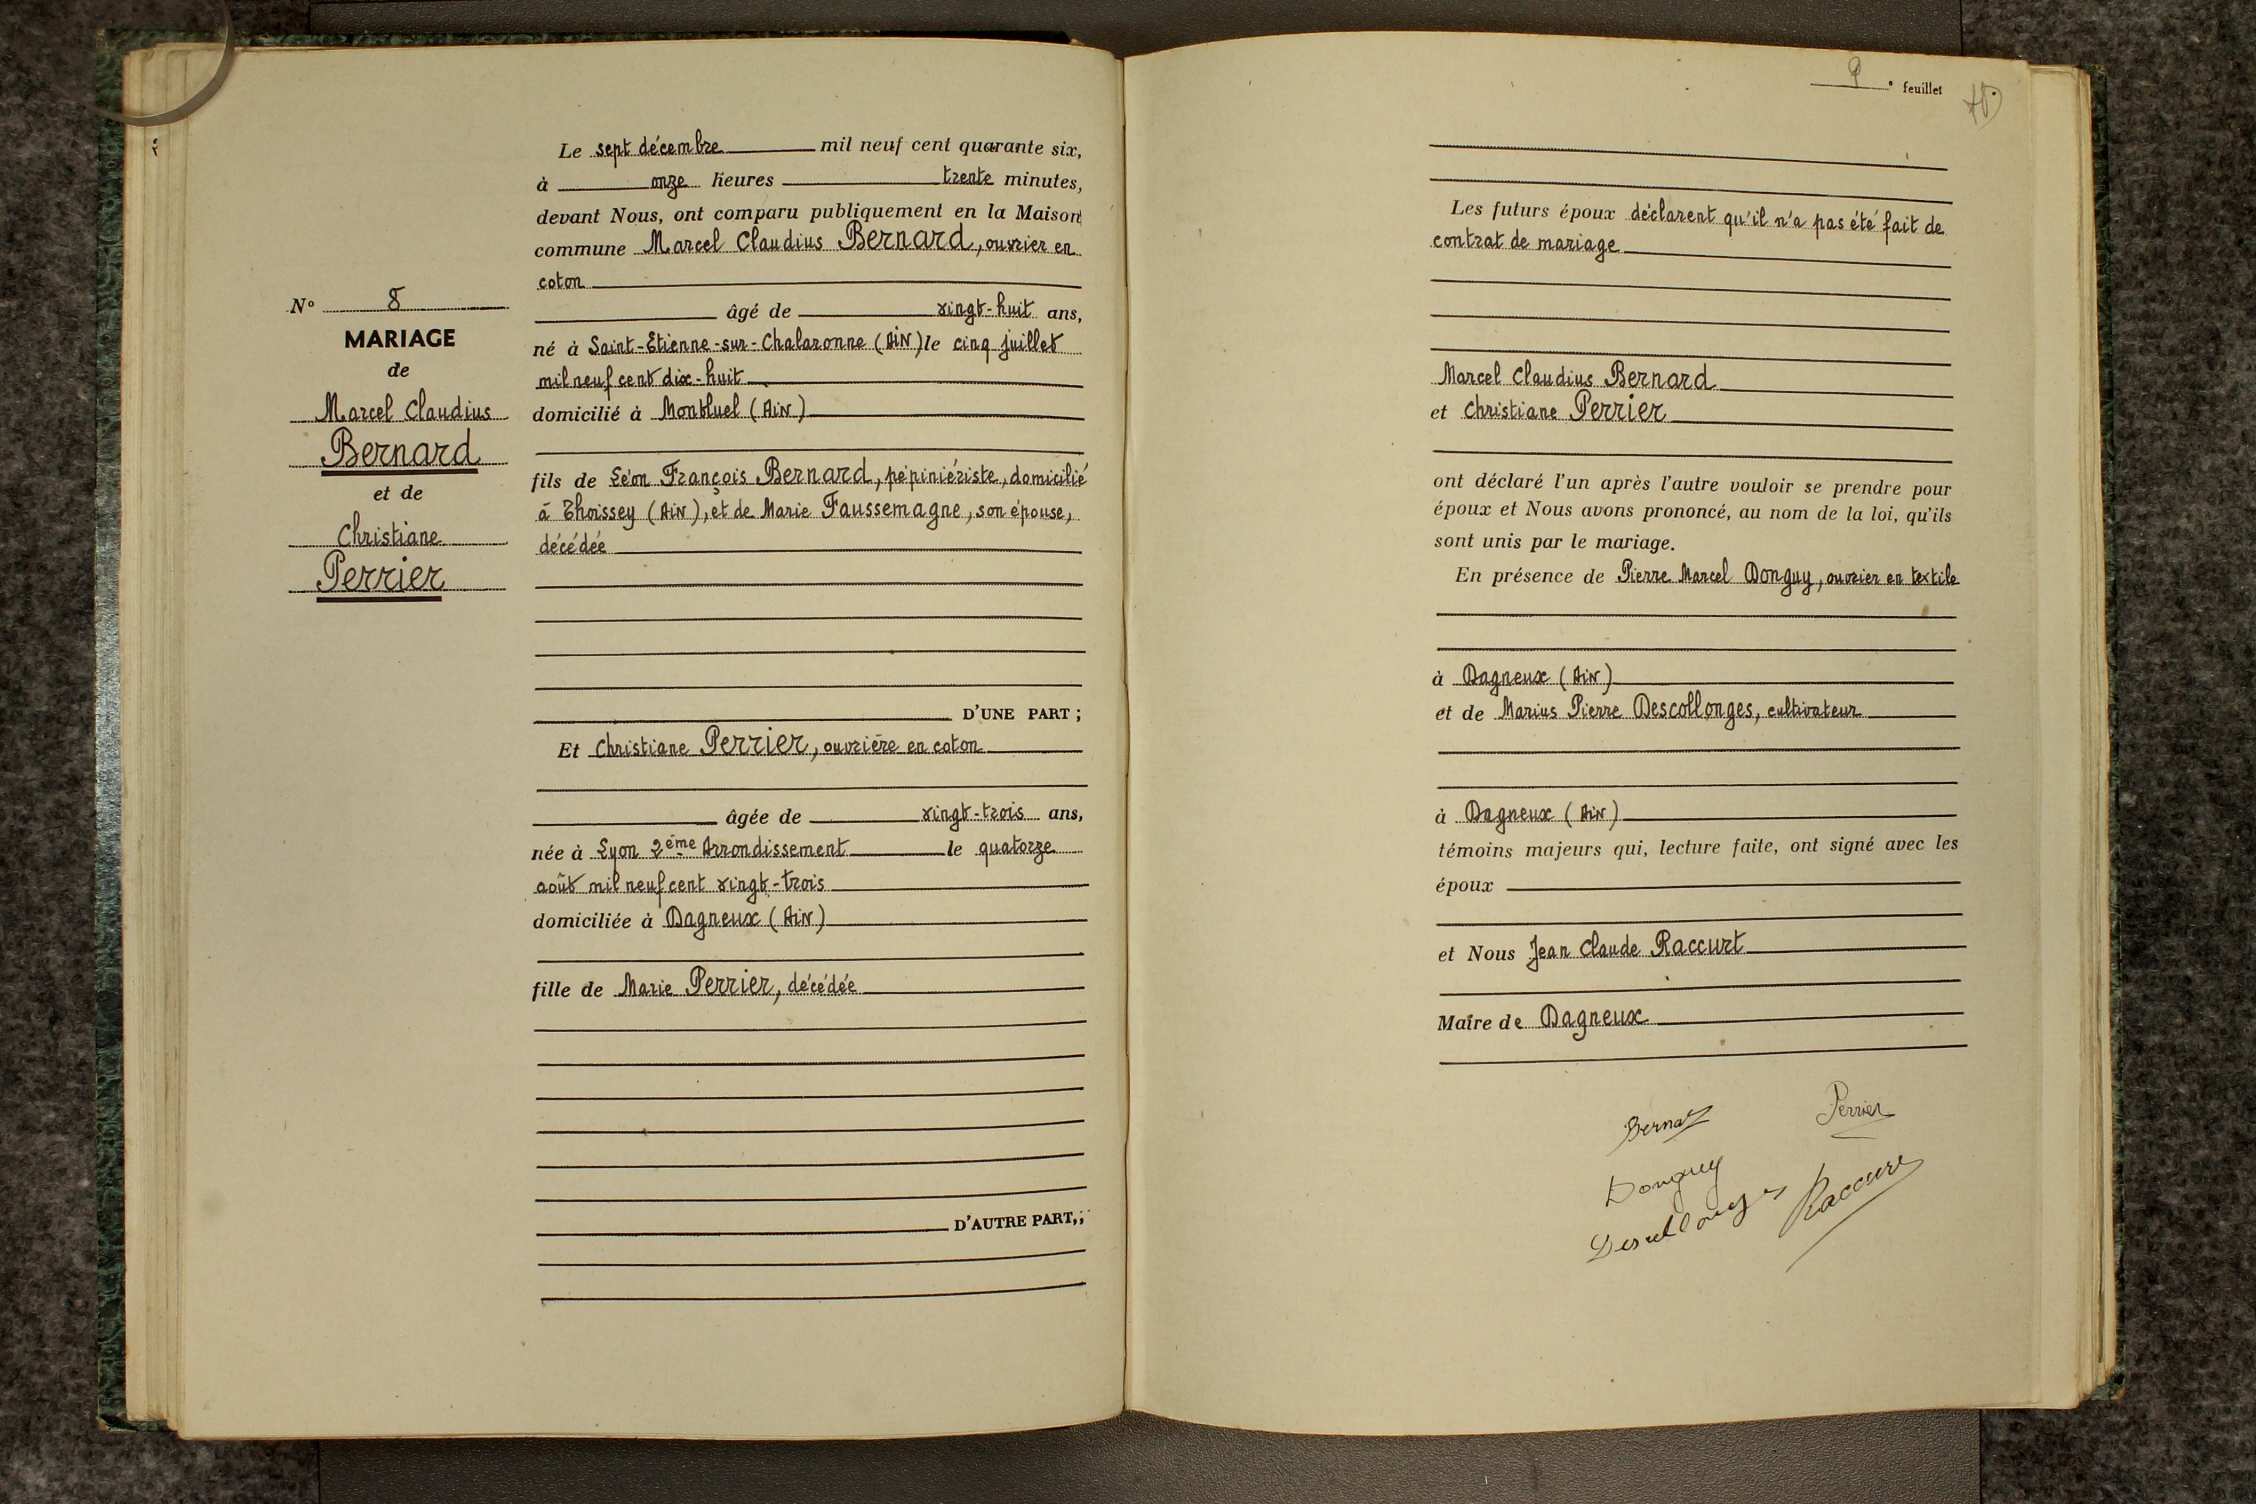 Le sept décembre mil neuf cent quarante six,
à onze heures trente minutes,
devant Nous, ont comparu publiquement en la Maison
commune Marcel Claudius Bernard, ouvrier en
coton
âgé de vingt-huit ans,
né à Saint-Etienne-sur-Chalaronne (Ain) le cinq juillet
mil neuf cent dix-huit
domicilié à Montluel (Ain)
fils de Léon François Bernard, pépiniériste, domicilié
à Thoissey (Ain), et de Marie Faussemagne, son épouse,
décédée
D'UNE PART ;
Et Christiane Perrier, ouvrière en coton
âgée de vingt-trois ans,
née à Lyon 2ème Arrondissement le quatorze
août mil neuf cent vingt-trois
domiciliée à Dagneux (Ain)
fille de Marie Perrier, décédée
D'AUTRE PART,;
No 8
MARIAGE
de
Marcel Claudius
Bernard
et de
Christiane
Perrier
9 e feuillet
Les futurs époux déclarent qu'il n'a pas été fait de
contrat de mariage
Marcel Claudius Bernard
et Christiane Perrier
ont déclaré l'un après l'autre vouloir se prendre pour
époux et Nous avons prononcé, au nom de la loi, qu'ils
sont unis par le mariage.
En présence de Pierre Marcel Donguy, ouvrier en textile
à Dagneux (Ain)
et de Marius Pierre Descollonges, cultivateur
à Dagneux (Ain)
témoins majeurs qui, lecture faite, ont signé avec les
époux
et Nous Jean Claude Raccurt
Maire de Dagneux
Bernard
Perrier
Donguy
Descollonges
Raccurt